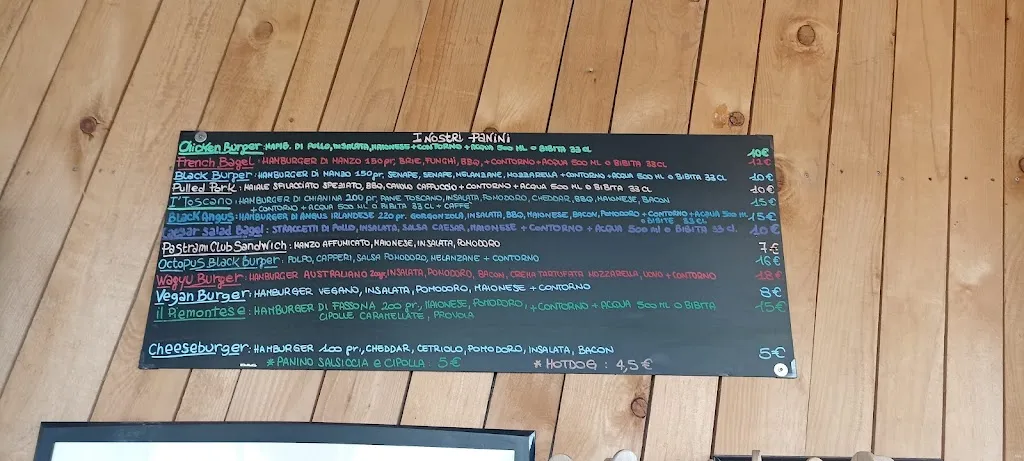 I NOSTRI PANINI
Chicken Burger: HAMB. DI POLLO, INSALATA, MAIONESE + CONTORNO + ACQUA 500 ML O BIBITA 33 CL 10€
French Bagel: HAMBURGER DI MANZO 150 pr, BRIE, FUNGHI, BBQ, + CONTORNO + ACQUA 500 ML O BIBITA 33 CL 12€
Black Burger: HAMBURGER DI MANZO 150 pr, SENAPE, SENAPE, MELANZANE, MOZZARELLA + CONTORNO + ACQUA 500 ML O BIBITA 33 CL 10€
Pulled Pork: MAIALE SFILACCIATO SPEZIATO, BBQ, CAVOLO CAPPUCCIO + CONTORNO + ACQUA 500 ML O BIBITA 33 CL 10€
I' Toscano: HAMBURGER DI CHIANINA 200 pr, PANE TOSCANO, INSALATA, POMODORO, CHEDDAR, BBQ, MAIONESE, BACON 15€
+ CONTORNO + ACQUA 500 ML O BIBITA 33 CL + CAFFE'
Black Angus: HAMBURGER DI ANGUS IRLANDESE 220 pr. GORGONZOLA, INSALATA, BBQ, MAIONESE, BACON, POMODORO + CONTORNO + ACQUA 500 ML 15€
O BIBITE 33 CL
Caesar Salad Bagel: STRACCETTI DI POLLO, INSALATA, SALSA CAESAR, MAIONESE + CONTORNO + ACQUA 500 ML O BIBITA 33 CL. 10€
Pastrami Club Sandwich: MANZO AFFUMICATO, MAIONESE, INSALATA, POMODORO 7€
Octopus Black Burger: POLPO, CAPPERI, SALSA POMODORO, MELANZANE + CONTORNO 16€
Wagyu Burger: HAMBURGER AUSTRALIANO INSALATA, POMODORO, BACON, CREMA TARTUFATA MOZZARELLA, UOVO + CONTORNO 18€
Vegan Burger: HAMBURGER VEGANO, INSALATA, POMODORO, MAIONESE + CONTORNO 8€
il Piemontese: HAMBURGER DI FASSONA 200 pr, MAIONESE, POMODORO, + CONTORNO + ACQUA 500 ML O BIBITA 15€
CIPOLLE CARAMELLATE, PROVOLA
Cheeseburger: HAMBURGER 100 pr, CHEDDAR, CETRIOLO, POMODORO, INSALATA, BACON 5€
* PANINO SALSICCIA e CIPOLLA: 5€ * HOTDOG: 4,5€